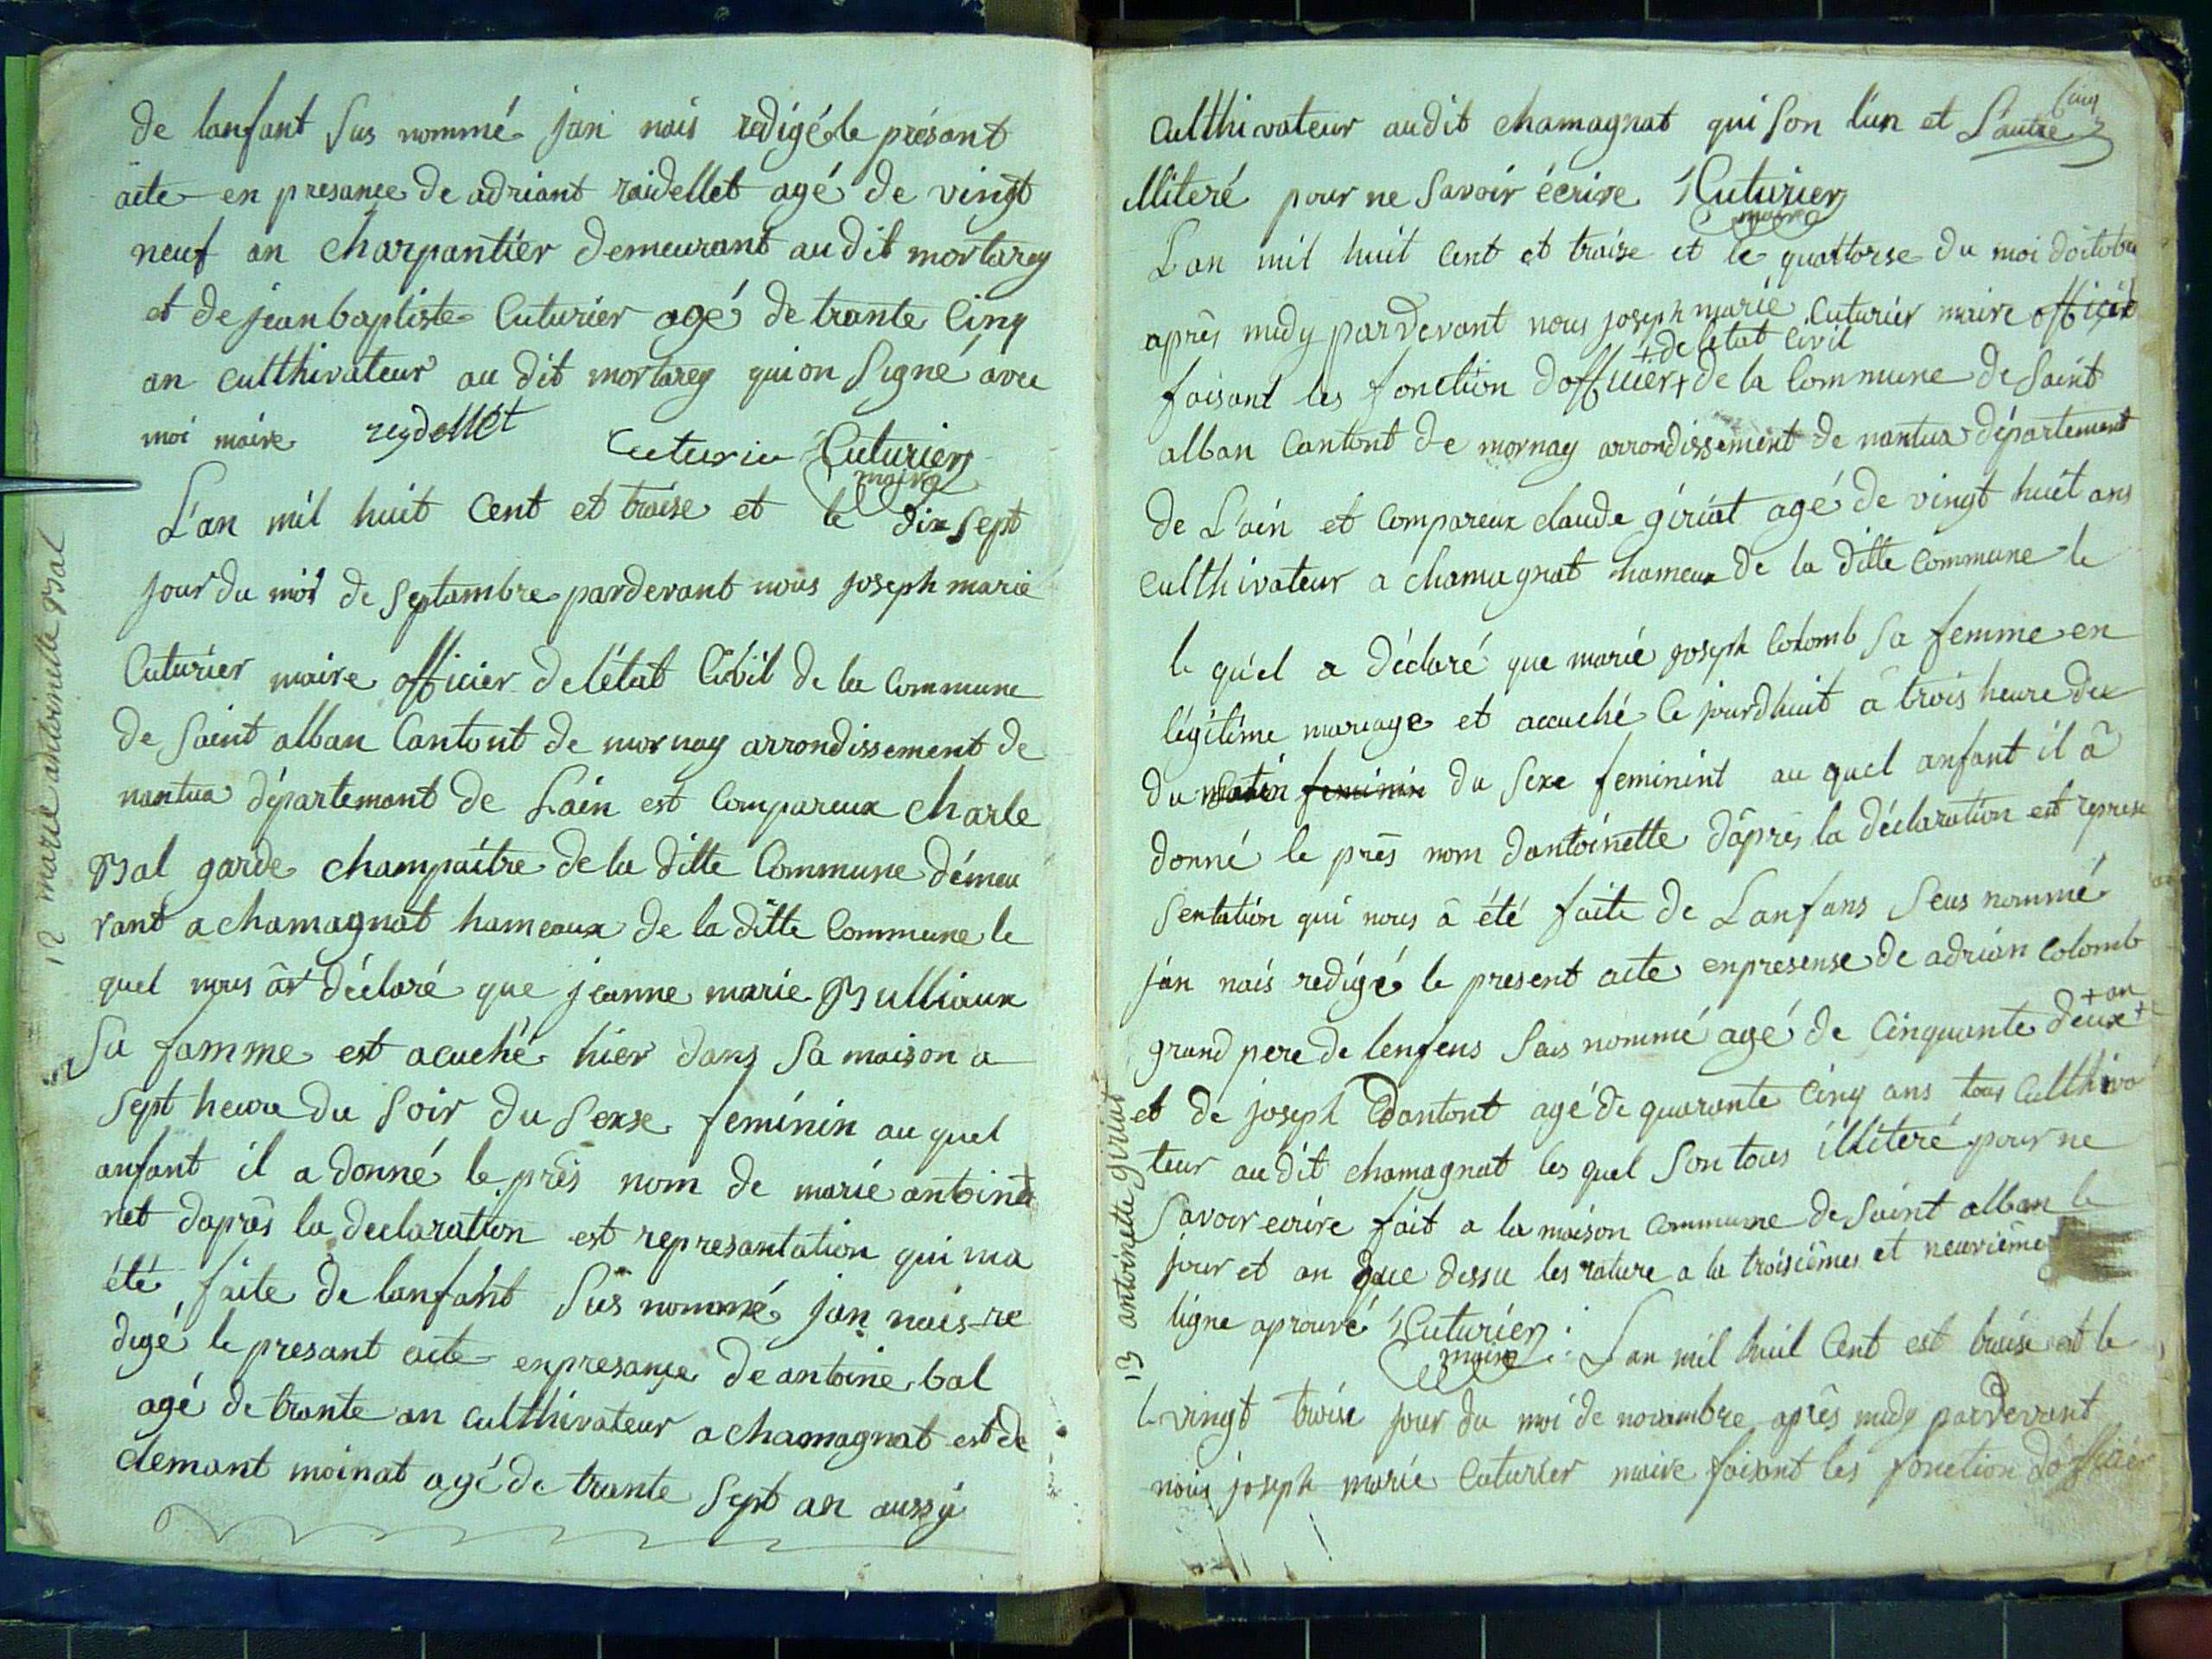 de lanfant sus nommé jan nais redigé le présant
acte en presance de adriant raidellet agé de vingt
neuf an charpantier demeurant au dit mortarey
et de jean baptiste Cuturier agé de trante Cinq
an cultthivateur au dit mortarey qui on Signé avec
moi maire reydellet Cuturier Cuturier
maire
L'an mil huit Cent et traise et le dix sept
jour du moi de Septambre pardevant nous joseph marie
Cuturier maire officier de létat Civil de la Commune
de Saint alban Cantont de mornay arrondissement de
nantua département de Lain est Compareux Charle
Bal garde champaitre de la ditte Commune démeu
rant a chamagnat hameaux de la ditte Commune le
quel nous at déclaré que jeanne marie Bulliaux
Sa famme est acuché hier dans Sa maison a
Sept heure du Soir du Sexse feminin au quel
anfant il a donné le près nom de marie antoinet
net daprès la declaration est represantation qui ma
été faite de lanfant Sus nommé jan nais re
digé le presant acte enpresance de antoine bal
agé de trante an cultthivateur a chamagnat est de
clemant moinat agé de trante Sept an aussy
12 marie antoinette Bal
Cinq
cultthivateur au dit chamagnat qui Son l'un et L'autre
illiteré pour ne Savoir écrire Cuturier
maire
L'an mil huit Cent et traise et le quattorse du moi doctobre
après midy pardevant nous joseph marie Cuturier maire officié
+ de létat Civil
faisant les fonction dofficier + de la Commune de Saint
alban Cantont de mornay arrondissement de nantua département
de L'ain et Compareux claude giriat agé de vingt huit ans
cultthivateur a chamagnat hameux de la ditte Commune le
le quel a déclaré que marie joseph Colomb Sa femme en
légitime mariage et accuché Ce jourdhuit a trois heure du
du matin feminin du Sexe feminint au quel anfant il a
donné le près nom dantoinette daprès la déclaration est represe
Sentation qui nous a été faite de Lanfans Sus nommé
jan nais redigé le present acte enpresense de adrian Colomb
+ an
grand pere de lenfens Sus nommé agé de Cinquante deux +
et de joseph Dantont agé de quarante Cinq ans tous Cultthiva
teur au dit chamagnat les quel Son tous illiteré pour ne
Savoir ecrire fait a la maison Commune de Saint alban le
jour et an que dessu les rature a la troisièmes et neuvième
ligne aprouvé Cuturier
maire
L'an mil huit Cent est traise est le
le vingt troise jour du moi de novambre après midy pardevant
nous joseph marie Cuturier maire faisant les fonction dofficier
13 antoinette giriat